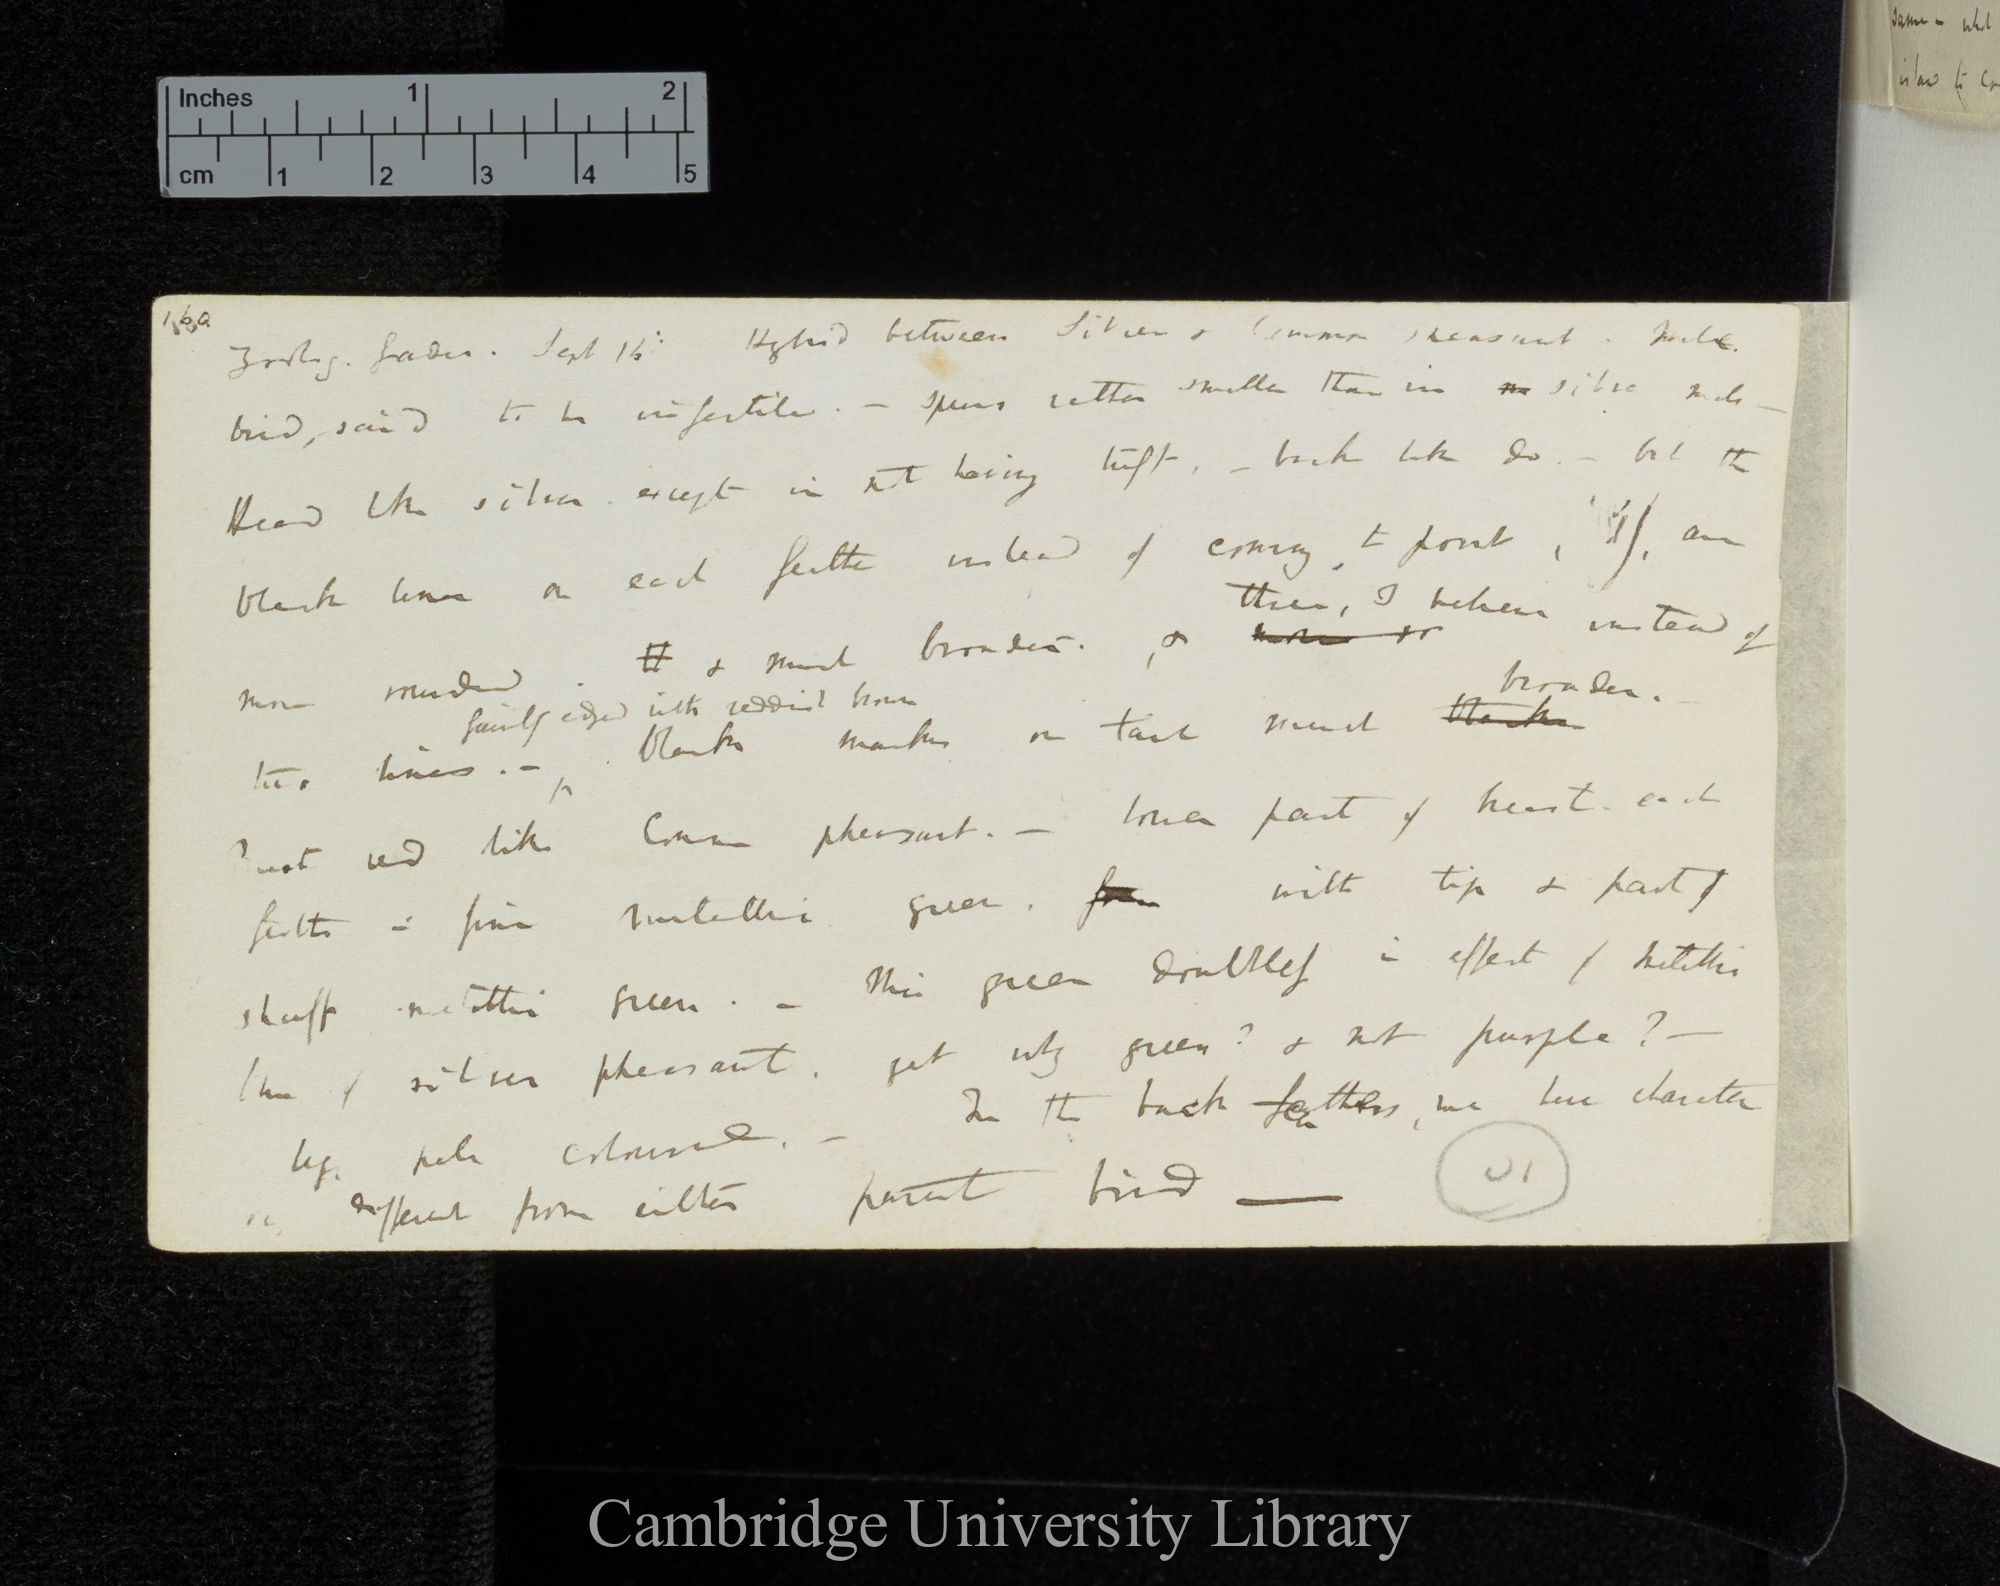 Inches 1 2
cm 1 2 3 4 5
Zoolog. Garden. Sept 16: Hybrid between Silver & Common pheasant. Male.
bird, said to be infertile. — spurs rather smaller than in silver male —
Head like silver. except in not having tuft. — back like do. — but the
black lines on each feather instead of coming to point, are
more rounded. & much broader. , & three, I believe instead of
faintly edged with reddish brown broader. —
two lines. — black marks on tail much
? not red like Common pheasant. — lower part of breast. each
feather is fine metallic green. with tip & part of
shaff metallic green. — this green doubtless is effect of metallic
hue of silver pheasant. yet why green? & not purple? —
legs pale coloured. — In the back feathers, we have character
different from either parent bird —
Cambridge University Library